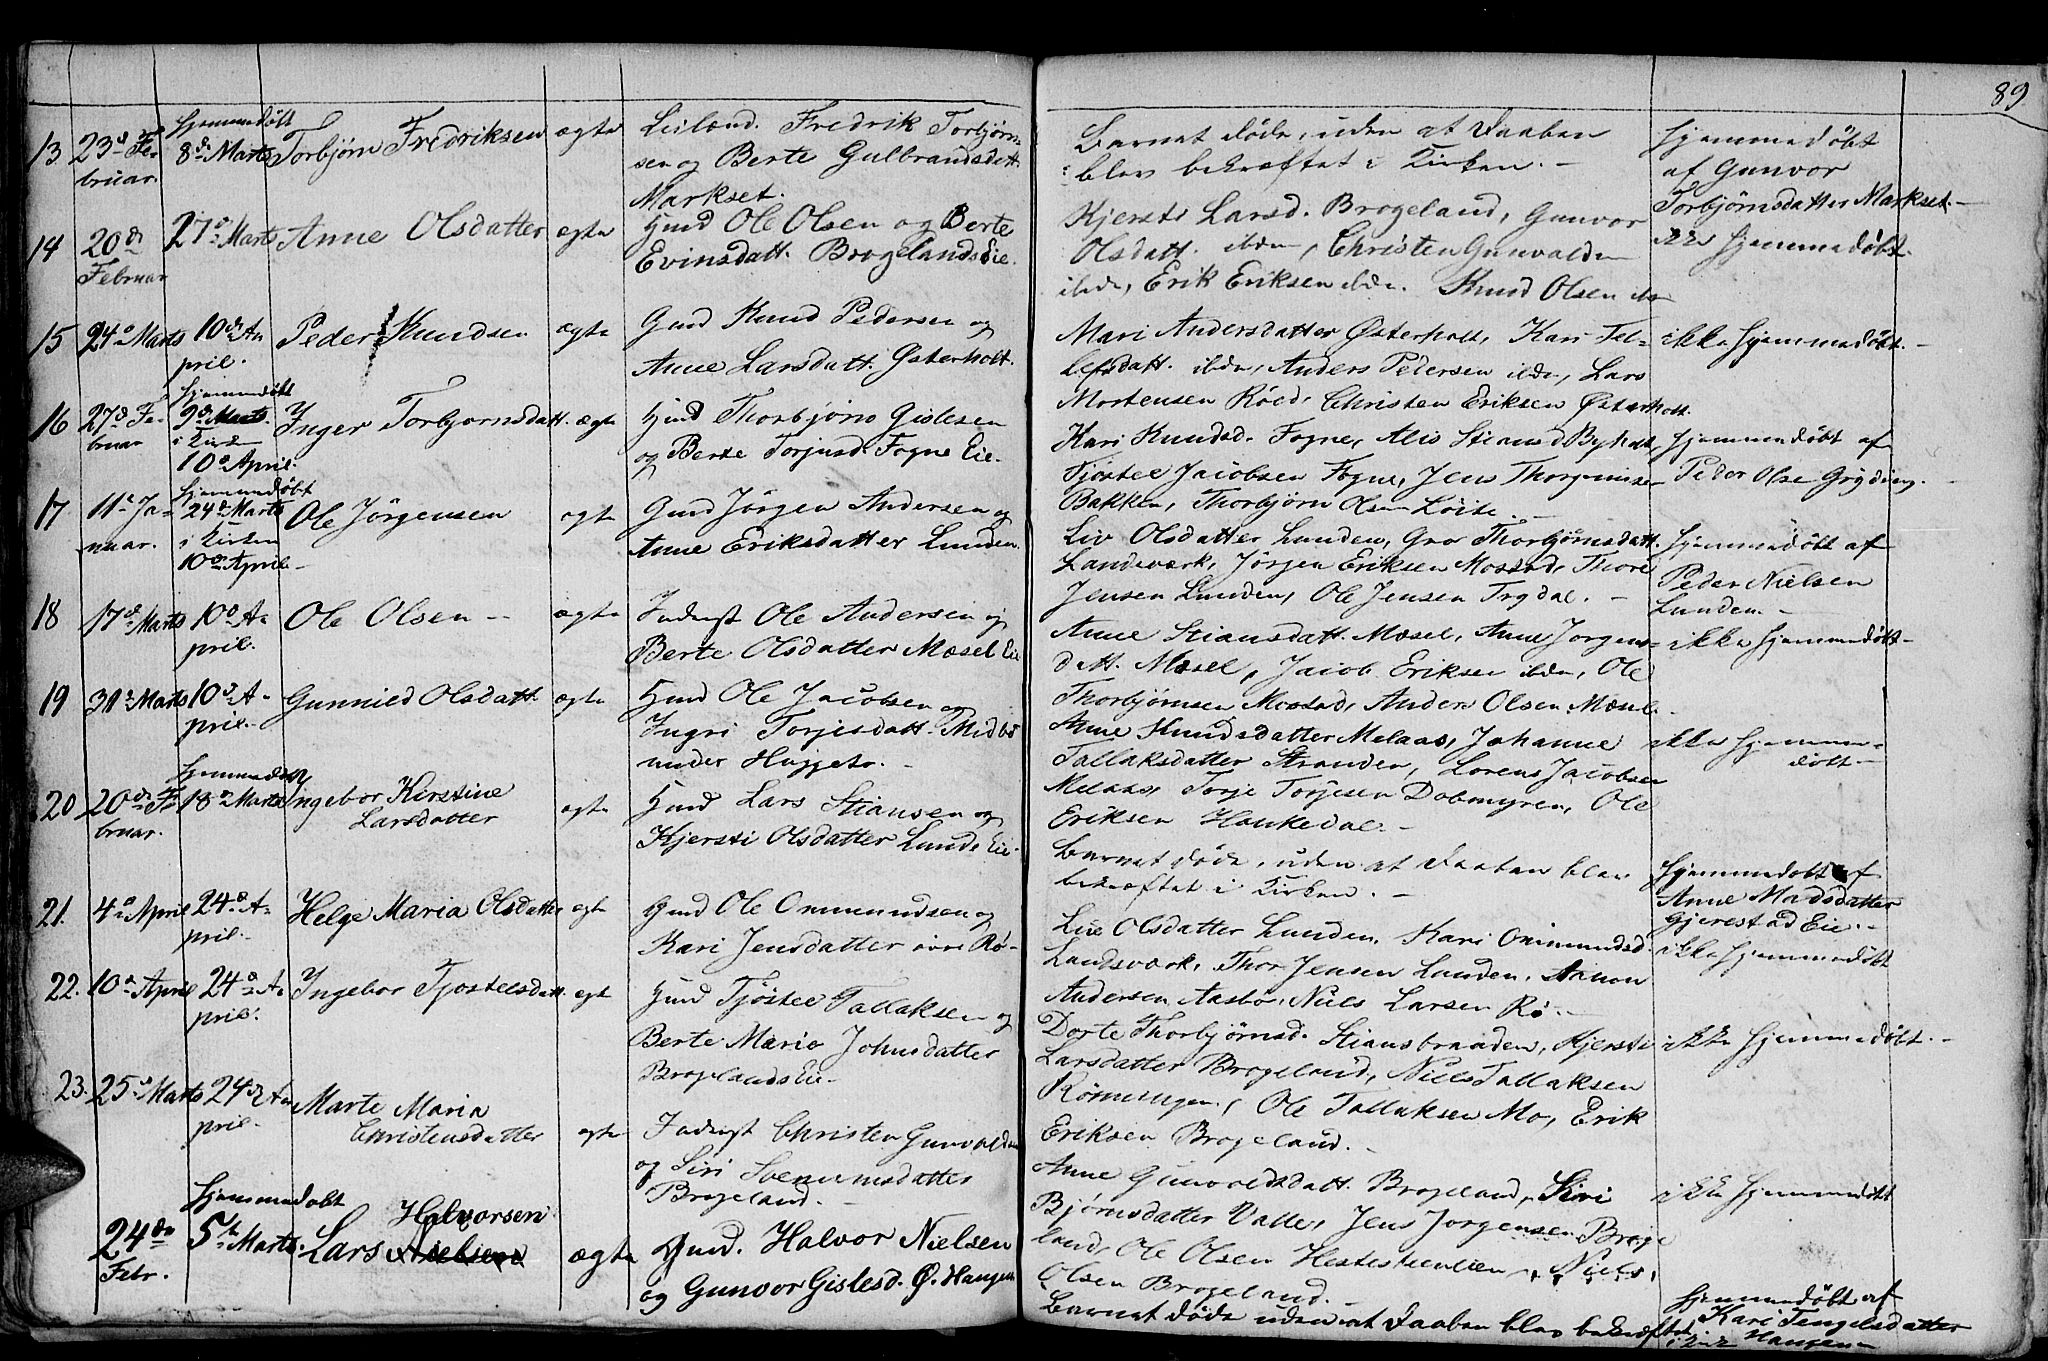 89
13 23d Fe-
bruar.
hjemmedøbt
8de Marts
Torbjørn Fredriksen
ægte
Leilænd. Fredrik Torbjørn-
sen og Berte Gulbrandsdatt.
Markset.
Barnet døde, uden at Daaben
blev bekræftet i Kirken. -
hjemmedøbt
af Gunvor
Torbjørnsdatter Markset. -
14 20de
Februar
27d Marts
Anne Olsdatter
ægte
Huusmd Ole Olsen og Berte
Evinsdatt. Brogelands Eie.
Kjersti Larsd. Brogeland, Gunvor
Olsdatt. ibdm, Christen Gunvaldsen
ibdm, Erik Eriksen ibdm. Knud Olsen ibdm
ikke hjemmedøbt.
15 24d Marts
10de A-
pril.
Peder Knudsen
ægte
Gmd Knud Pedersen og
Anne Larsdatt. Østerholt.
Mari Andersdatter Østerholt, Kari Tel-
lefsdatt. ibdm, Anders Pedersen ibdm, Lars
Mortensen Röed, Christen Eriksen Østerholt.
ikke hjemmedøbt. -
16 27d Fe-
bruar
hjemmedøbt
9de Marts
i Kirken
10d April.
Inger Torbjornsdatt.
ægte
Hmd Thorbjörn Gislesen
og Berte Torjusd. Fogne Eie.
Kari Knudsd. Fogne, Alis Stiansd Byholt,
Tjøstel Jacobsen Fogne, Jens Thorgrimsen
Bakken, Thorbjørn Olsen Löite. -
hjemmedøbt af
Peder Olsen Gryting. -
17 11te Ja-
nuar.
hjemmedøbt
24d Marts
i Kirken
10d April.
Ole Jörgensen
ægte
Gmd Jörgen Andersen og
Anne Eriksdatter Lunden.
Liv Olsdatter Lunden, Gro Thorbjørnsdatt.
Landsværk, Jörgen Eriksen Mostad, Thore
Jensen Lunden, Ole Jensen Trydal. -
hjemmedøbt af
Peder Nielsen
Lunden. -
18 17d Marts
10d A-
pril.
Ole Olsen -
ægte
Inderst Ole Andersen og
Berte Olsdatter Mæsel Eie
Anne Stiansdatt. Mæsel, Anne Jorgens-
datt. Mæsel, Jacob Eriksen ibdm, Ole
Thorbjørnsen Mostad, Anders Olsen Mæsel.
ikke hjemmedøbt -
19 31te Marts
10d A-
pril. -
Gunnild Olsdatt.
ægte
Hmd Ole Jacobsen og
Ingri Torjesdatt. Midbø
under Huggeto. -
Anne Knudsdatter Melaas, Johanne
Tallaksdatter Stranden, Lorens Jacobsen
Melaas, Torje Torjesen Dobmyren, Ole
Eriksen Haukedal. -
ikke hjemme-
døbt -
20 20de Fe-
bruar.
hjemmedøbt
18d Marts
Ingebor Kirstine
Larsdatter
ægte
Hmd Lars Stiansen og
Kjersti Olsdatter Lunds Eie.
Barnet döde, uden at Daaben blev
bekræftet i Kirken. -
hjemmedøbt af
Anne Madsdatter
Gjerestad Eie. -
21. 4d April
24d A-
pril. -
Helge Maria Olsdatter
ægte
Gmd Ole Ommundsen og
Kari Jensdatter övre Rø-
Live Olsdatter Lunden, Kari Ommundsd.
Landsværk, Thor Jensen Lunden, Aanon
Andersen Aasbø, Niels Larsen Rø. -
ikke hjemmedøbt
22. 10d April
24d A-
pril.
Ingebor Tjostelsdatt.
ægte
Hmd Tjöstel Tallaksen og
Berte Maria Johnsdatter
Brogelands Eie -
Dorte Thorbjørnsd. Stiansbraaden, Kjersti
Larsdatter Brogeland, Niels Tallaksen
Rømmingen, Ole Tallaksen Mo, Erik
Eriksen Brogeland. -
ikke hjemmedøbt. -
23. 25d Marts
24de A-
pril. -
Marte Maria
Christensdatter
ægte
Inderst Christen Gunvaldsen
og Siri Svennumsdatter
Brogeland. -
Anne Gunvoldsdatt. Brogeland, Siri
Bjørnsdatter Valle, Jens Jorgensen Broge
land, Ole Olsen Hestesteenlien, Niels
Olsen Brogeland. -
ikke hjemmedøbt
24de
Febr.
hjemmedøbt
5te Marts.
Halvorsen
Lars Nielsen
ægte
Gmd. Halvor Nielsen
og Gunvor Gislesd. Ø. Haugen
Barnet døde uden at Daaben blev bekræftet
i Kirk
hjemmedøbt af
Kari Tengelsdatter
Haugen -